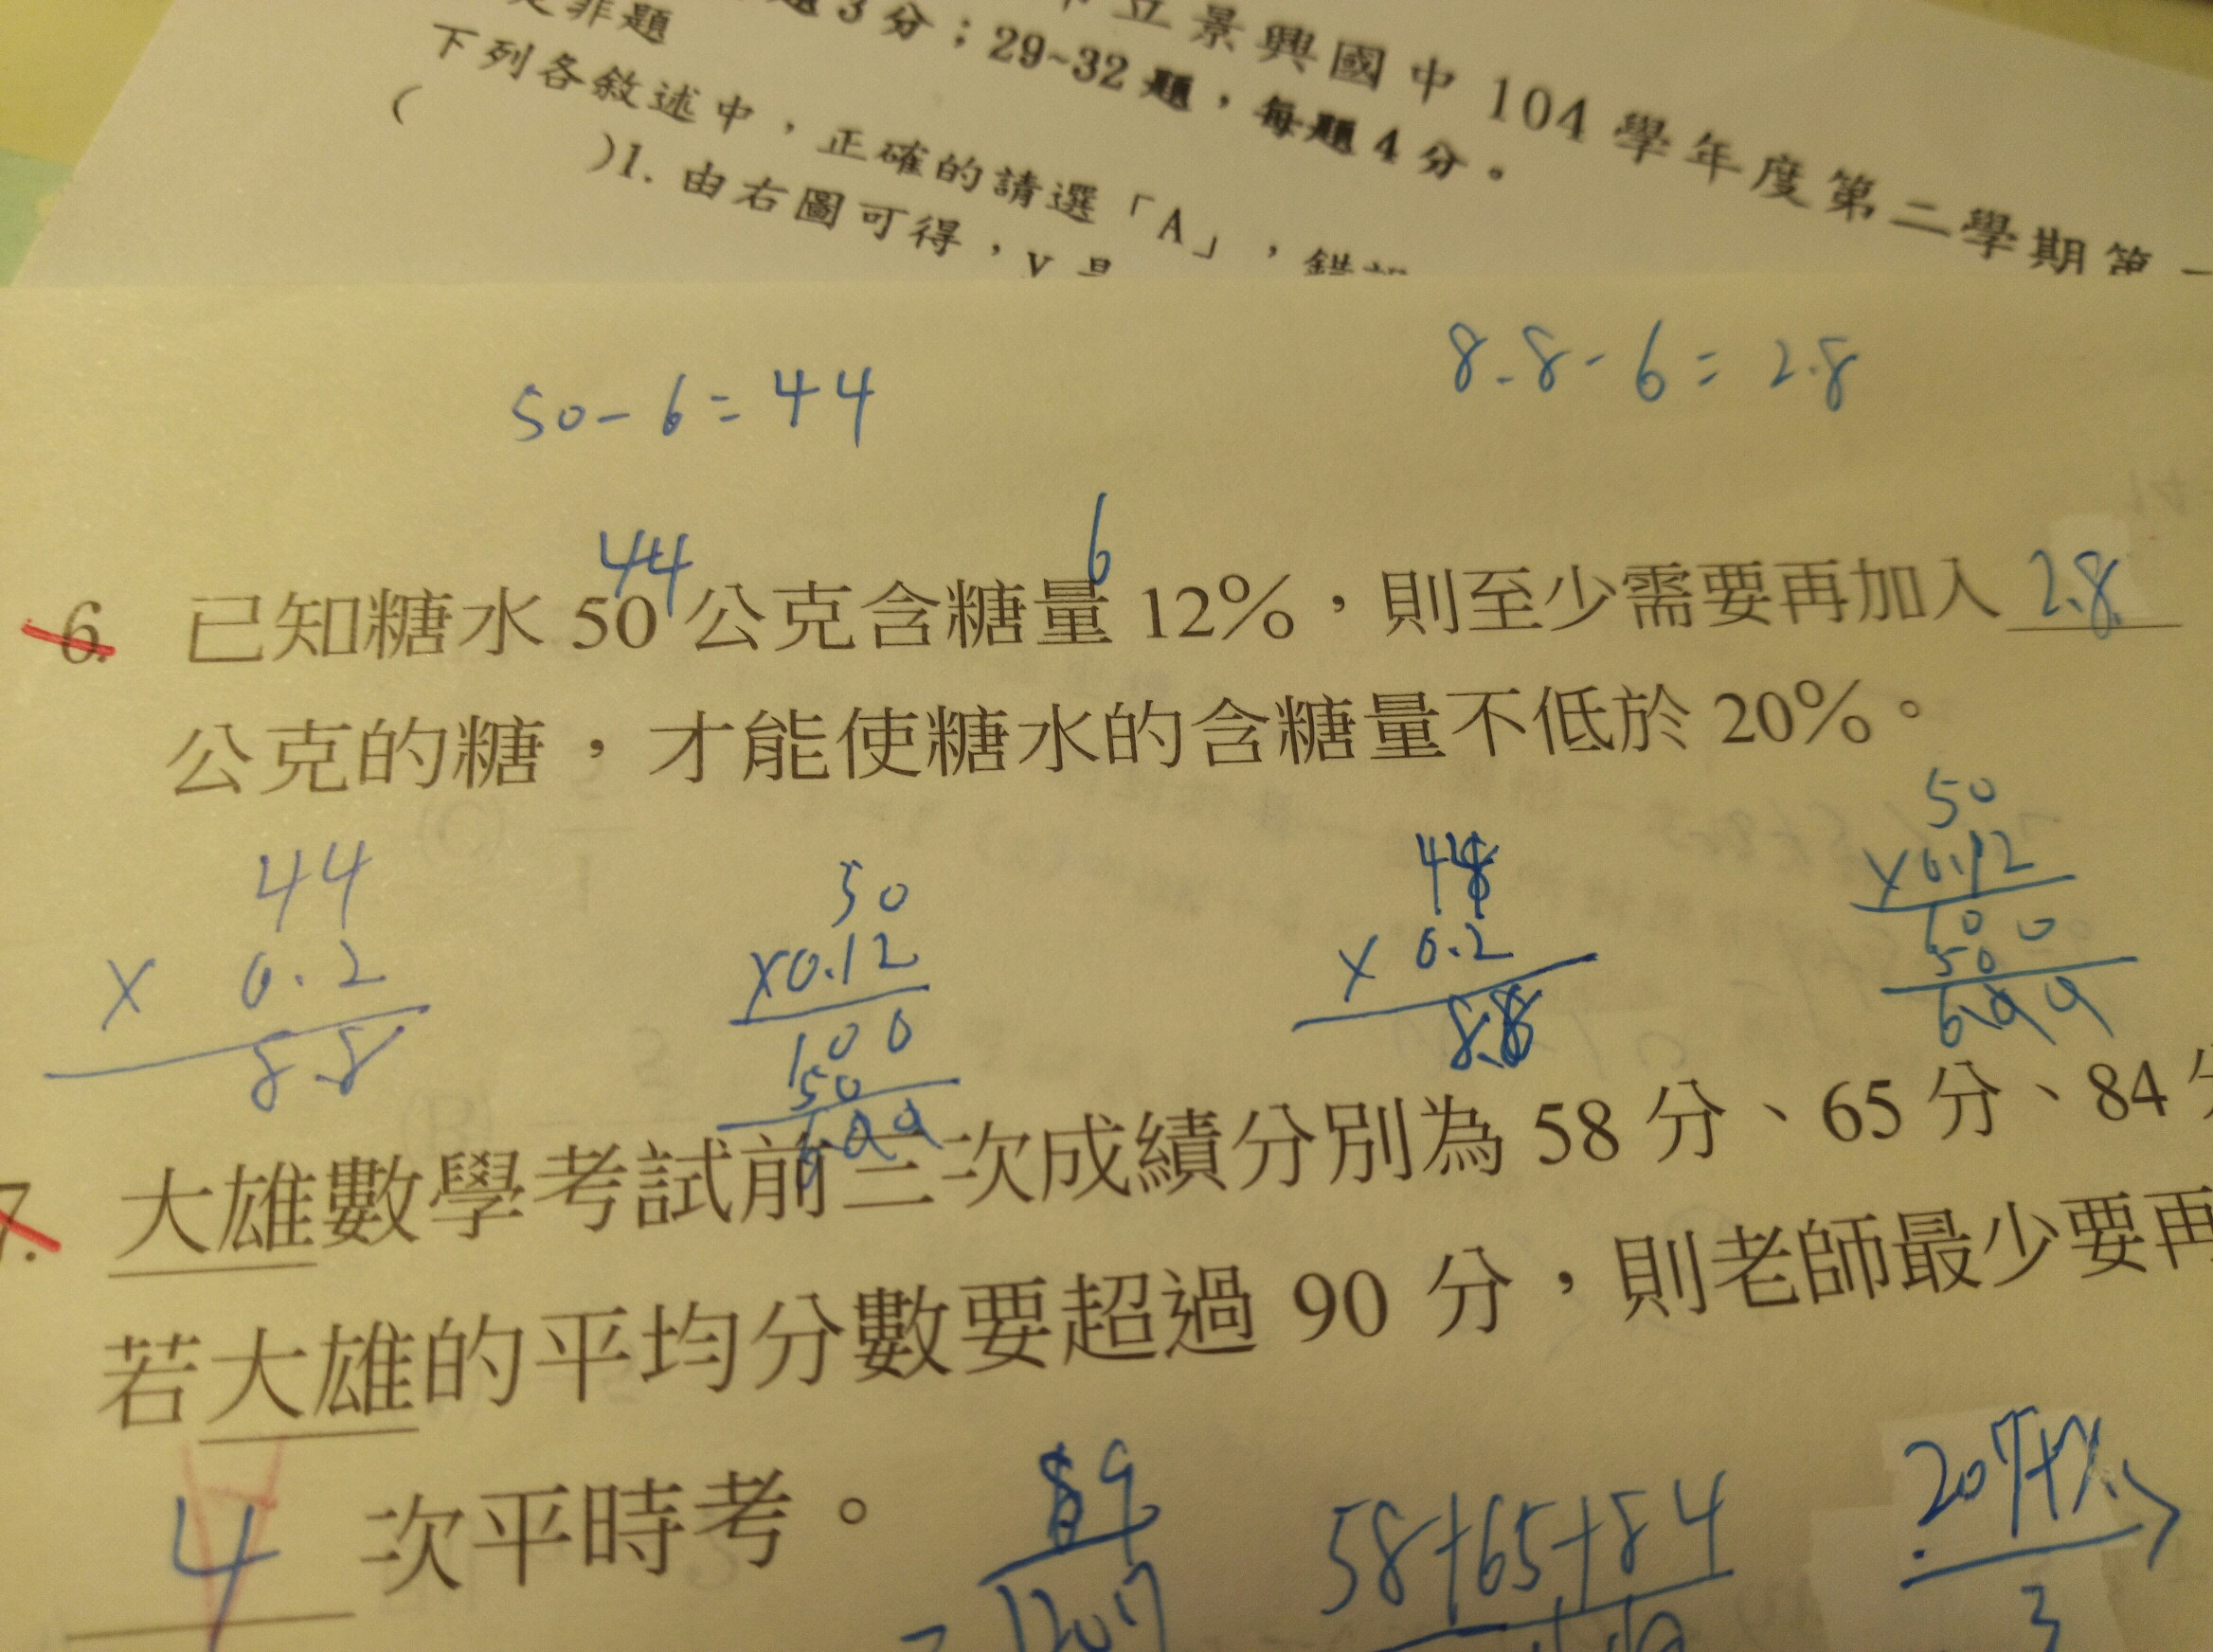 市立景興國中 104 學年度第二學期第一
題3分；29~32題，每題4分。
是非題
下列各敘述中，正確的請選「A」，錯誤
(     )1. 由右圖可得，y是
50-6=44
8.8-6=2.8
44
6
6. 已知糖水 50 公克含糖量 12%，則至少需要再加入 2.8
公克的糖，才能使糖水的含糖量不低於 20%。
44
× 0.2
8.8
50
×0.12
100
50
600
44
× 0.2
8.8
50
×0.12
100
50
6.00
7. 大雄數學考試前三次成績分別為 58 分、65 分、84 分
若大雄的平均分數要超過 90 分，則老師最少要再
4 次平時考。
58+65+84
207+x
3